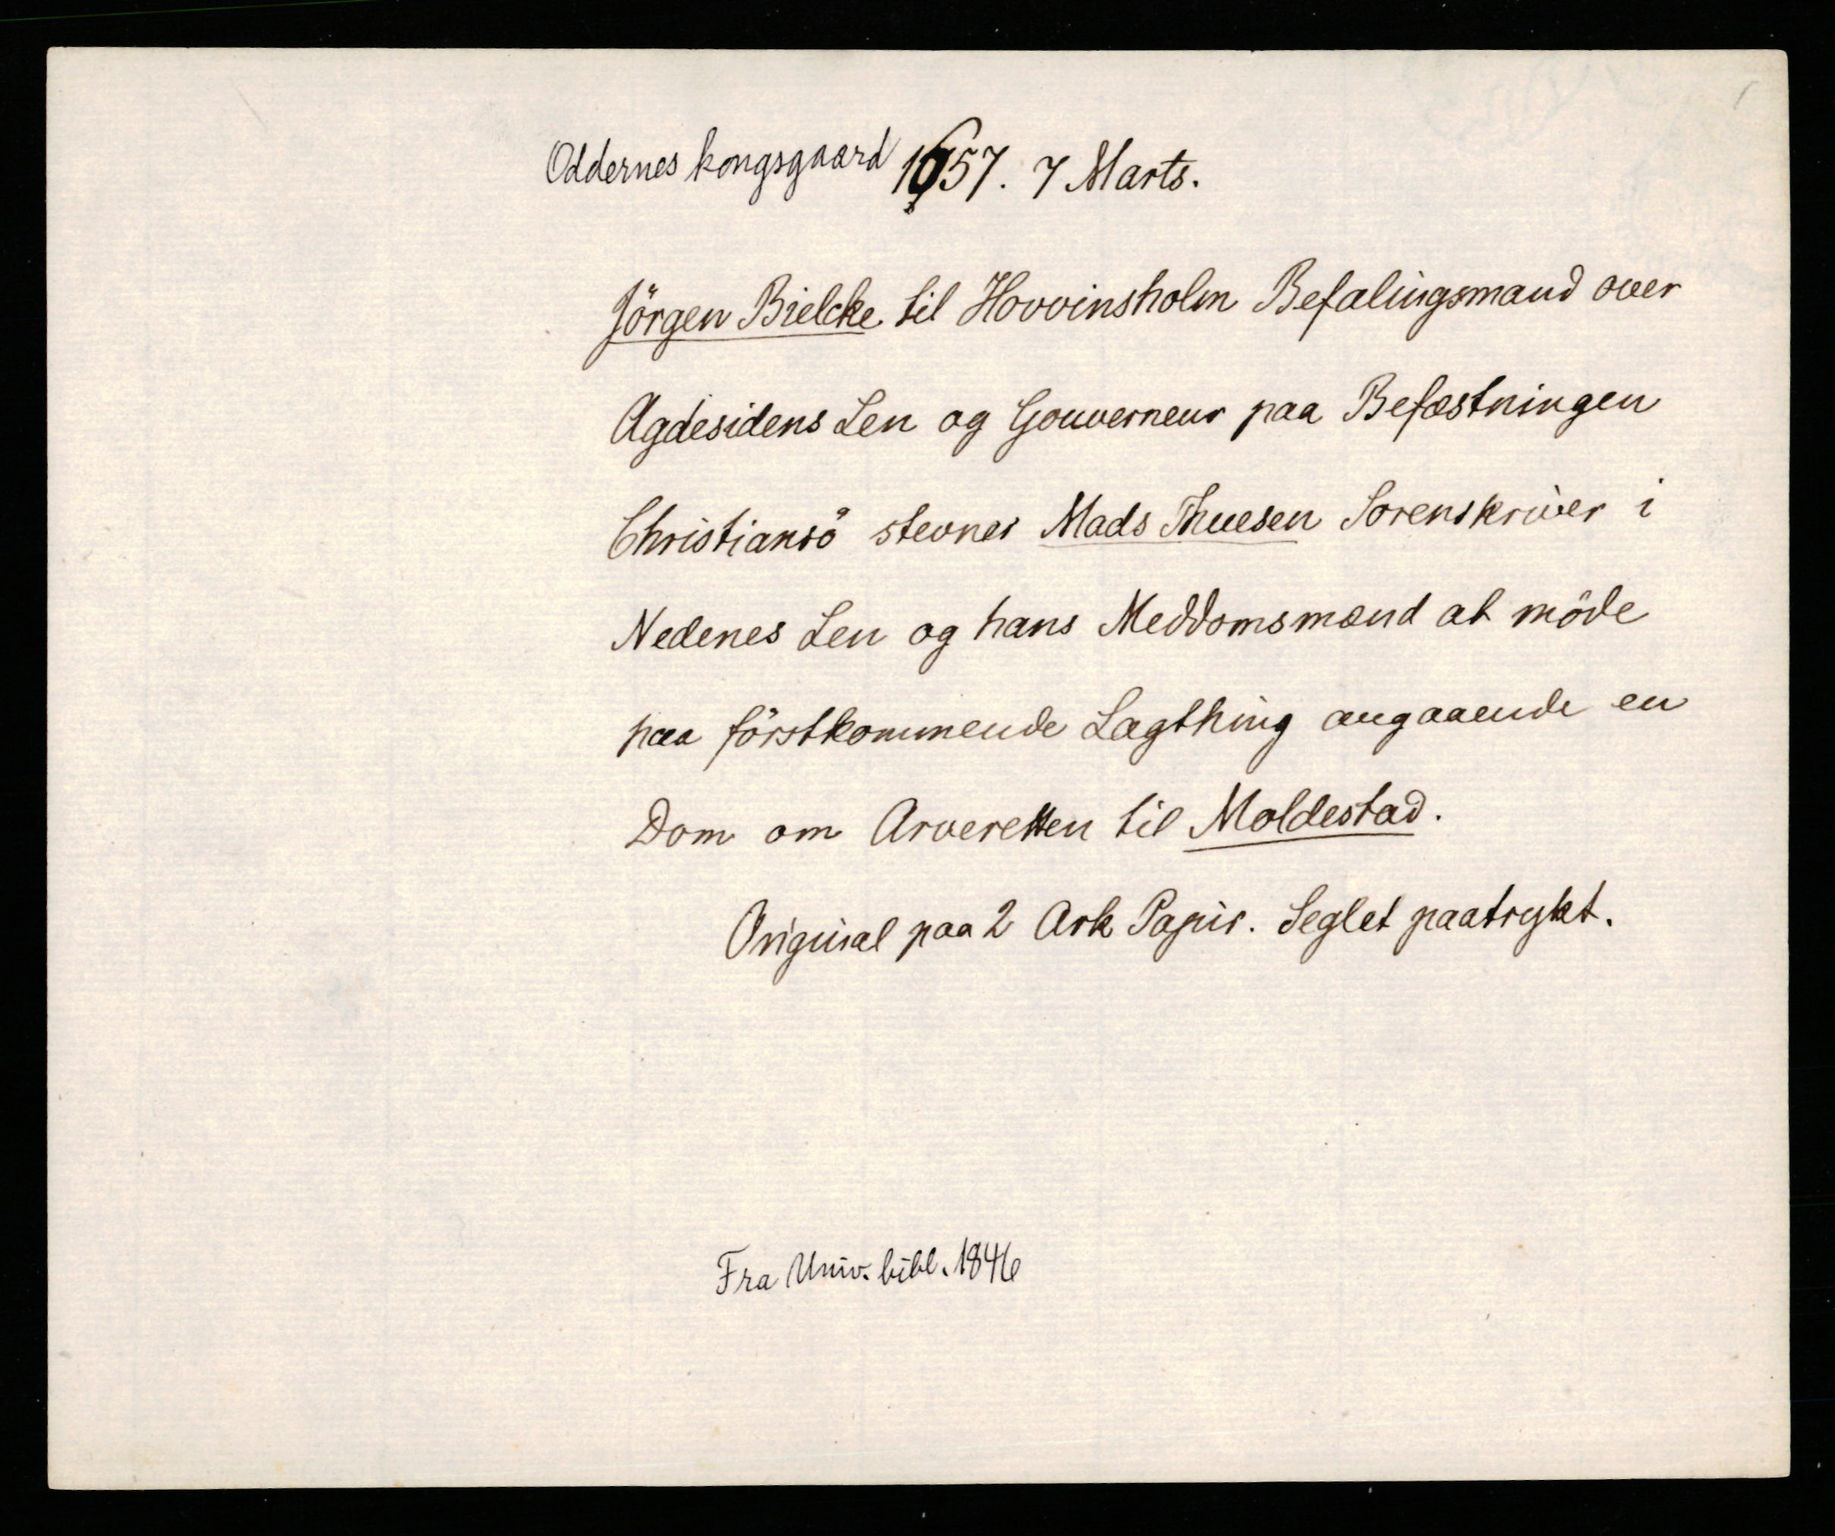 Oddernes kongsgaard 1657. 7 Marts.
Jörgen Bielcke til Hovvinsholm Befalingsmand over
Agdesidens Len og Gouverneur paa Befæstningen
Christiansö stevner Mads Thuesen Sorenskriver i
Nedenes Len og hans Meddomsmænd at möde
paa förstkommende Lagthing angaaende en
Dom om Arveretten til Moldestad.
Original paa 2 Ark Papir. Seglet paatrykt.
Fra Univ. bibl. 1846